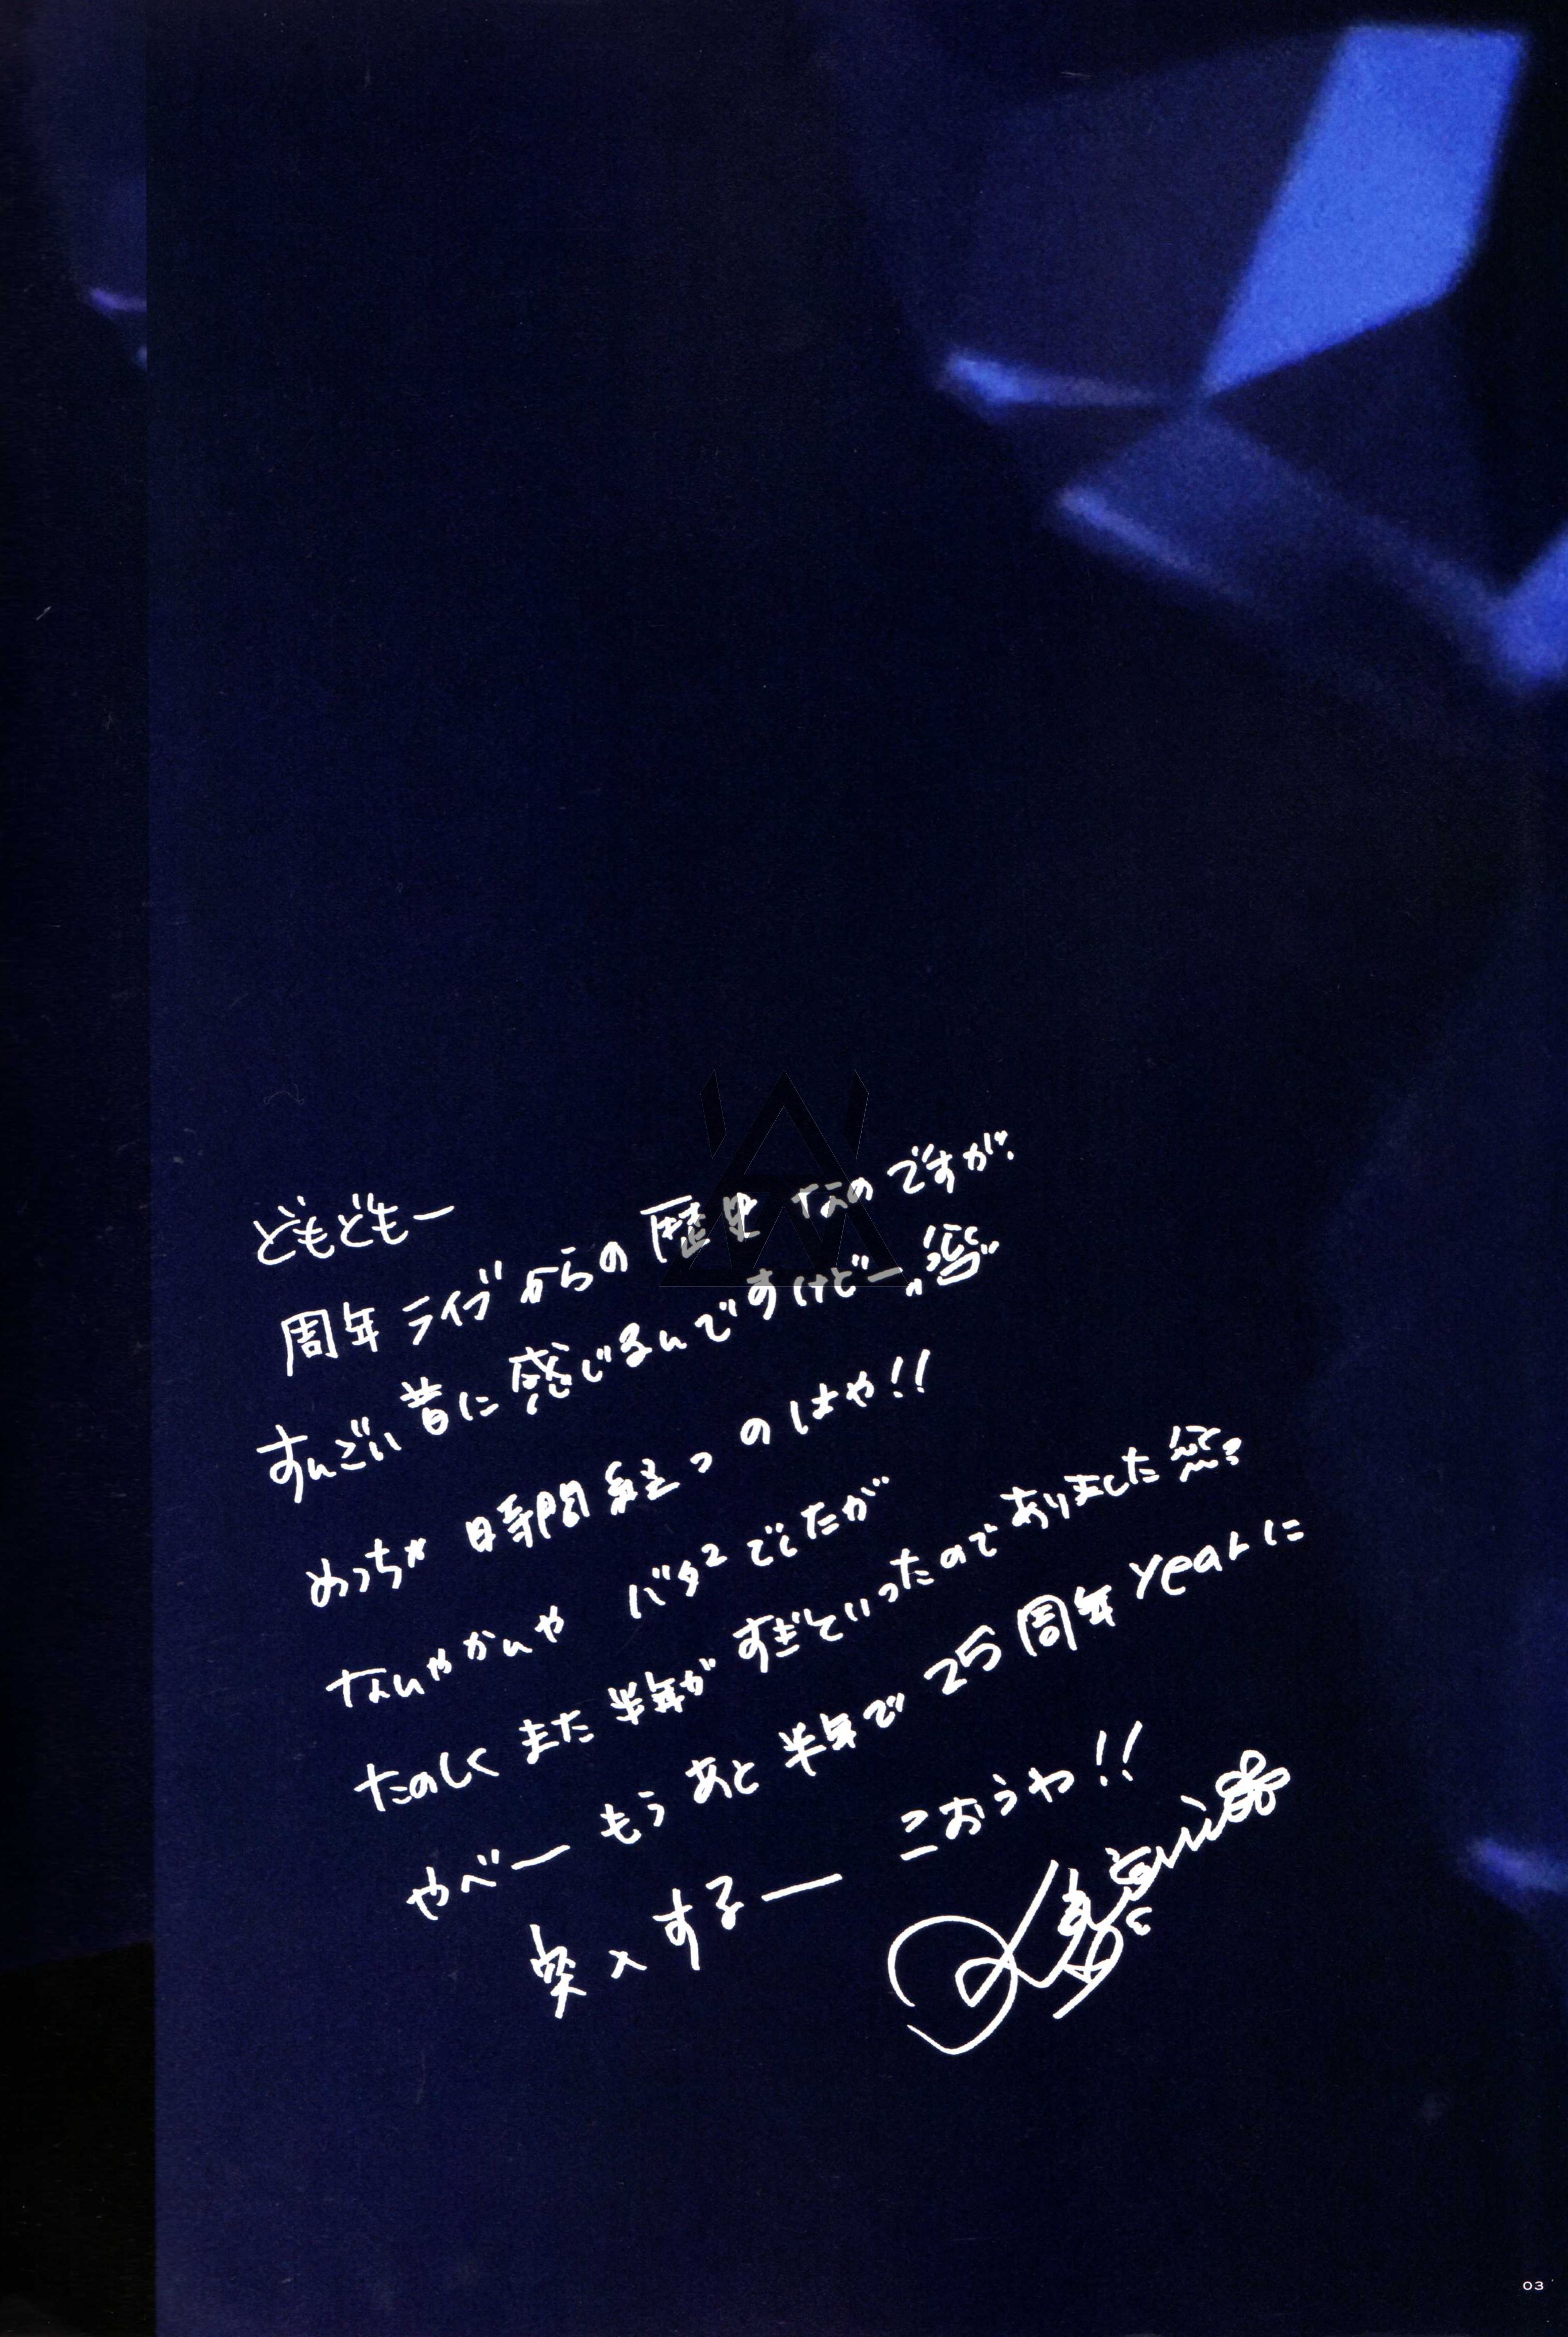 どもどもー
周年ライブからの歴史なのですが
すんごい昔に感じるんですけどー
めっちゃ時間経つのはや!!
なんやかんやバタ2でしたが
たのしくまた半年がすぎていったのでありました
やべーもうあと半年で25周年yearに
突入するー こおうわ!!
03